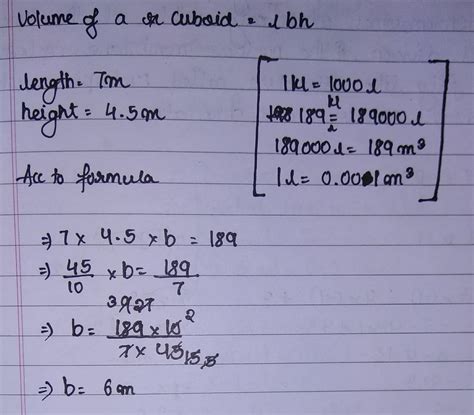 Volume of a cuboid = lbh
length = 7m
height = 4.5m
Acc to formula
1kl = 1000l
189 kl = 189000l
189000l = 189m³
1l = 0.001m³
⇒ 7 × 4.5 × b = 189
⇒ 45/10 × b = 189/7
⇒ b = 189 × 10 / 7 × 45
⇒ b = 6m